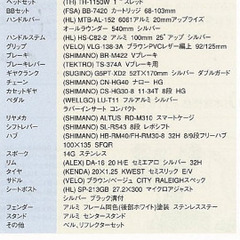 ヘッドセット (TH) TH-1150W 1" スレッド
BBセット (FSA) BB-7420 カートリッジ 68-103mm
ハンドルバー (HL) MTB-AL-152 6061アルミ 20mmアップライズ
オールラウンダー 540mm シルバー
ハンドルステム (HL) HS-C82-2 アルミ 100mm 25°アップ シルバー
グリップ (VELO) VLG-138-3A ブラウンPVCレザー縫上 92/125mm
ブレーキ (SHIMANO) BR-M422 Vブレーキ
ブレーキレバー (TEKTRO) TS-374A Vブレーキ用
ギヤクランク (SUGINO) G5PT-XD2 52TX170mm シルバー ダブルガード
チェーン (SHIMANO) CN-HG40 ナロー HG
カセットギヤ (SHIMANO) CS-HG30-8 11-34T 8段
ペダル (WELLGO) LU-T11 フルアルミ シルバー
ラバーインサート コンパクト
リヤメカ (SHIMANO) ALTUS RD-M310 スマートケージ
シフトレバー (SHIMANO) SL-RS43 8段 レボシフト
ハブ (SHIMANO) HB-RM40/FH-RM30-8 32H 8/9段フリーハブ
100×135 5FQR
スポーク 14G ステンレス
リム (ALEX) DA-16 20 H/E セミエアロ シルバー 32H
タイヤ (KENDA) 20X1.25 KWEST セミスリック E/V
サドル (VELO) ブラウンベーシック CITY RALEIGHスペック
シートポスト (HL) SP-213GB 27.2X300 マイクロアジャスト
シルバー ブラック溝付
フェンダー アルミ フレーム同色(後部ホワイト)塗装 ステンレスステー
スタンド アルミ センタースタンド
その他 ベル,リフレクターセット